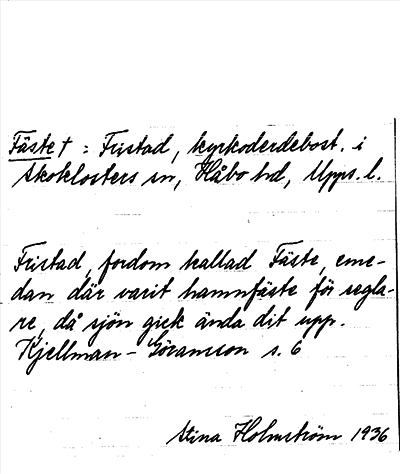 Fäste † : Fristad, kyrkoherdebost. i
Skoklosters sn, Håbo hd, Upps. l.
Fristad, fordom kallad Fäste, eme-
dan där varit hamnfäste för segla-
re, då sjön gick ända dit upp.
Kjellman - Göranson s. 6
Stina Holmström 1936